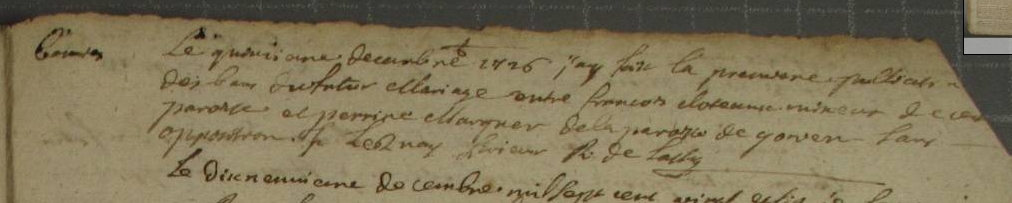 Le quinziane decembre 1726 j'ay fait la premiere publicati
des bans du futur Mariage entre francois mineur de ce
paroisse et perrine Marquer de la paroisse de goven sans
opposition prieur R. de lassy
Le dixneuviane decembre mil sept cent vingt et six